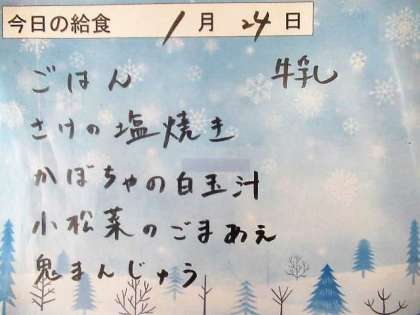 今日の給食 1月24日
ごはん 牛乳
さけの塩焼き
かぼちゃの白玉汁
小松菜のごまあえ
鬼まんじゅう